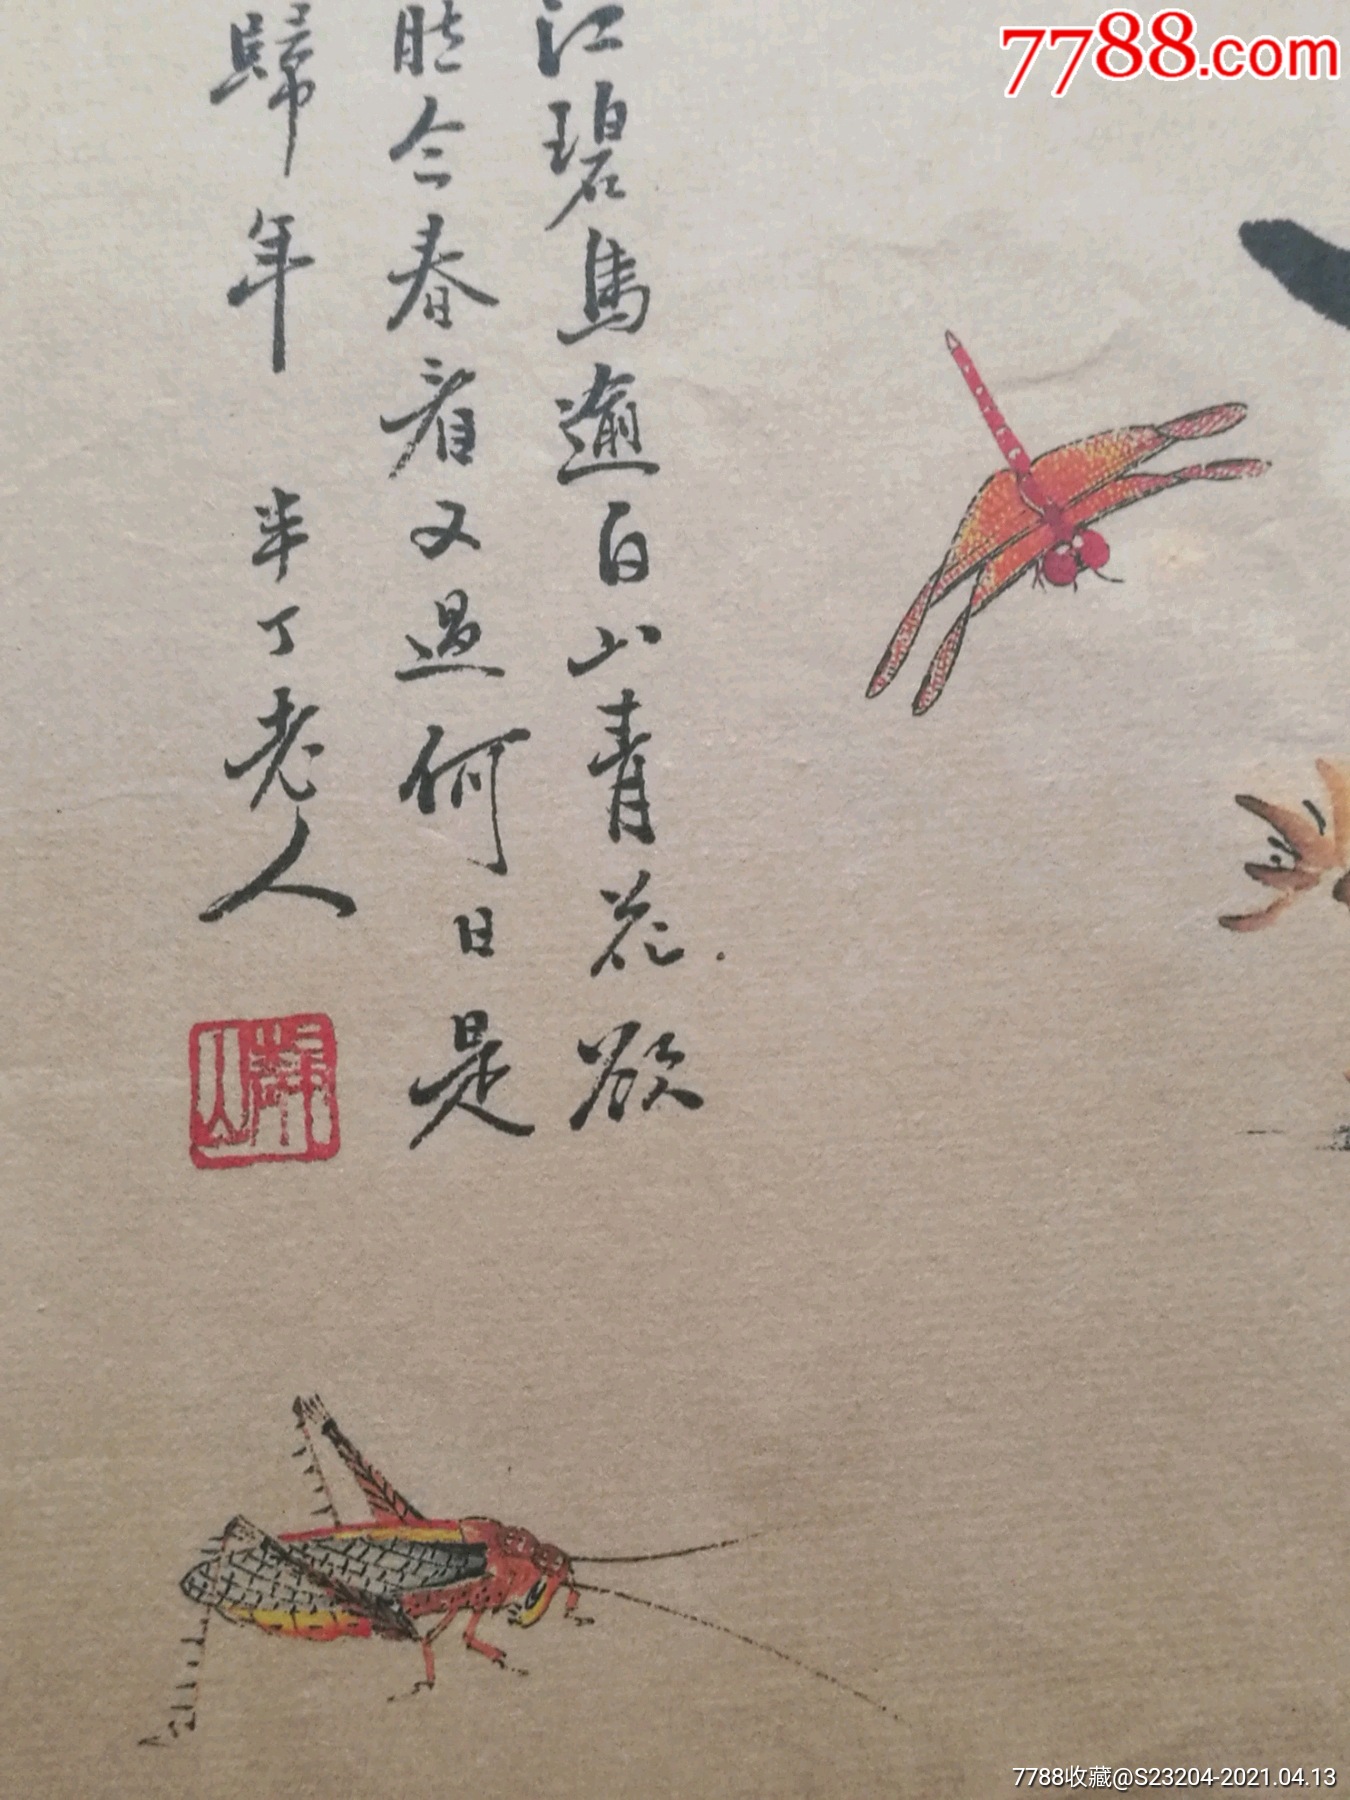 7788.com
江碧鳥逾白山青花欲
今春看又過何日是
歸年 半丁老人
7788收藏@S23204-2021.04.13